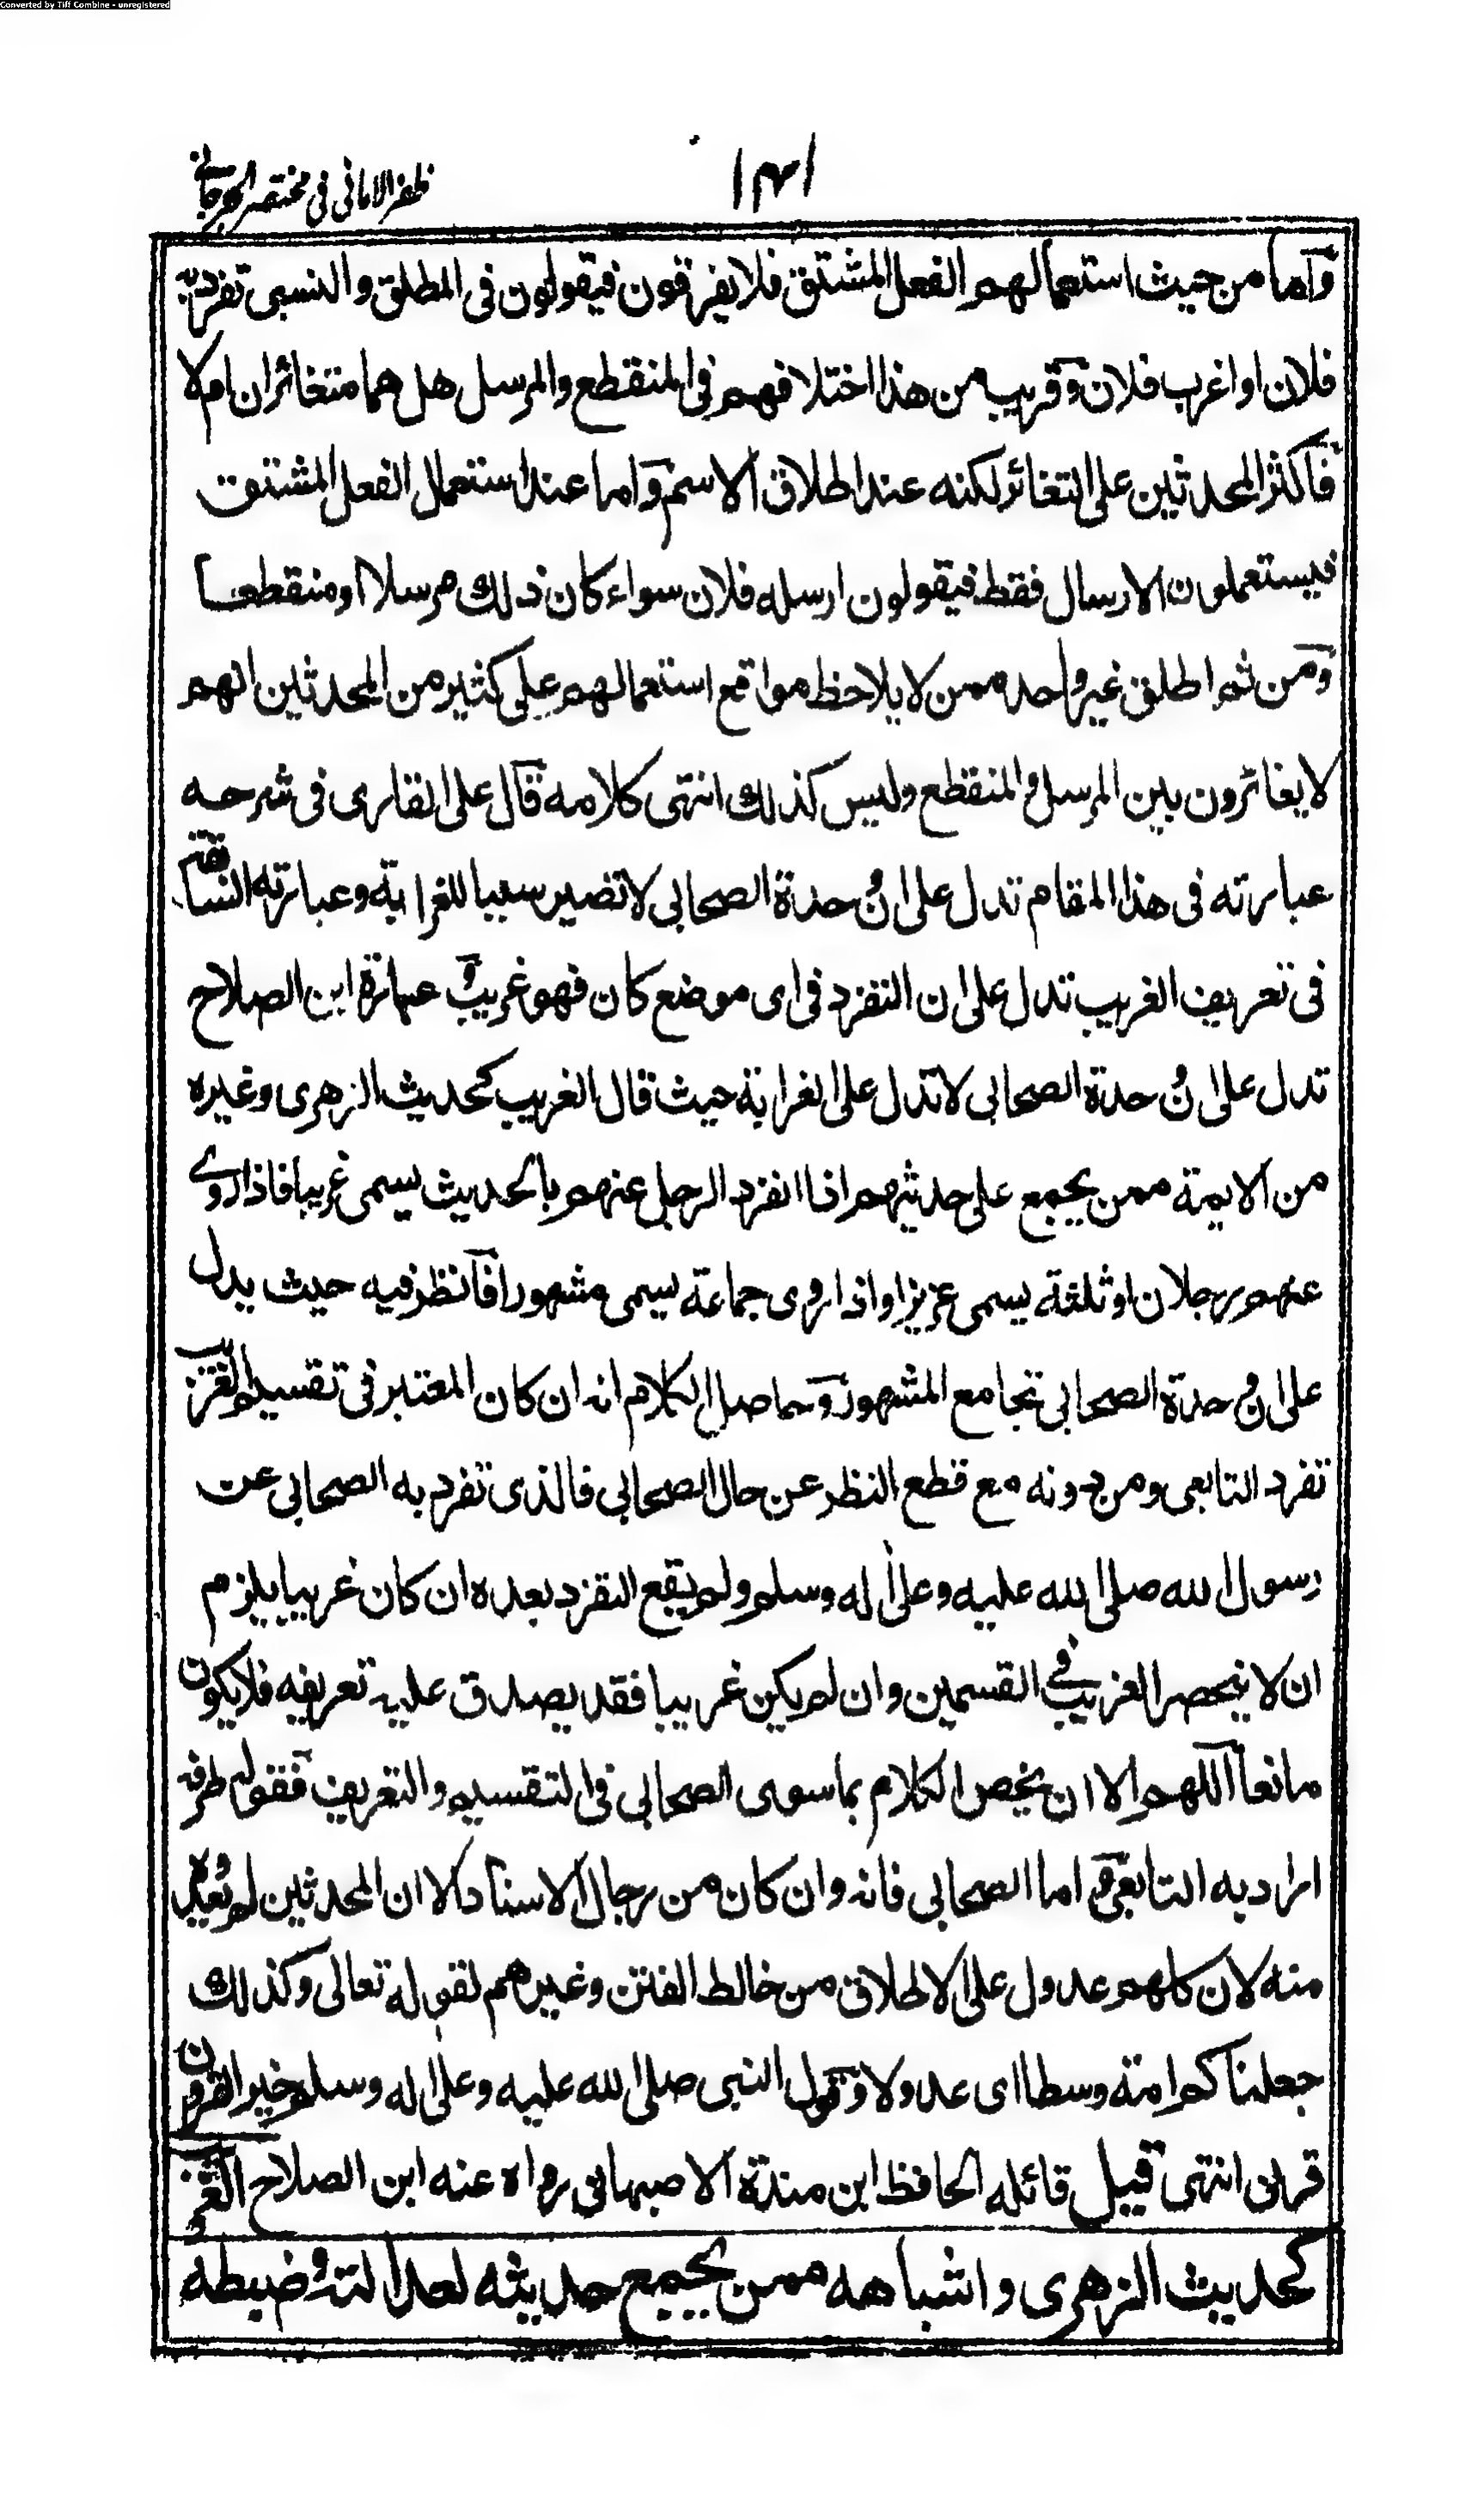 Converted by Tiff Combine - unregistered
١٣١
ظفر الامانى فى مختصر الجرجانے
وآما من حيث استعمالهم الفعل المشتق فلا يفرقون فيقولون فى المطلق والنسبى تفرد به
فلان او اغرب فلان وقريب من هذا اختلافهم فى المنقطع والمرسل هل هما متغائران ام لا
فاكثر المحدثين على التغائر لكنه عند اطلاق الاسم واما عند استعمال الفعل المشتق
فيستعملون الارسال فقط فيقولون ارسله فلان سواء كان ذلك مرسلا او منقطعا
ومن ثم اطلق غير واحد ممن لا يلاحظ مواقع استعمالهم على كثير من المحدثين انهم
لا يغائرون بين المرسل والمنقطع وليس كذلك انتهى كلامه قال على القارى فى شرحه
عبارته فى هذا المقام تدل على ان وحدة الصحابى لا تضير سببا للغرابة وعبارته السابقة
فى تعريف الغريب تدل على ان التفرد فى اى موضع كان فهو غريب وعبارة ابن الصلاح
تدل على ان وحدة الصحابى لا تدل على الغرابة حيث قال الغريب كحديث الزهرى وغيره
من الايمة ممن يجمع على حديثهم اذا انفرد الرجل عنهم بالحديث يسمى غريبا فاذا روے
عنهم رجلان او ثلثة يسمى عزيزا واذا روى جماعة يسمى مشهورا فآنظر فيه حيث يدل
على ان وحدة الصحابى تجامع المشهور وحاصل الكلام انه ان كان المعتبر فى تقسيم الغريب
تفرد التابعى ومن دونه مع قطع النظر عن حال الصحابى فالذى تفرد به الصحابى عن
رسول الله صلى الله عليه وعلى اله وسلم ولم يقع التفرد بعده ان كان غريبا يلزم
ان لا ينحصر الغريب فى القسمين وان لم يكن غريبا فقد يصدق عليه تعريفه فلا يكون
مانعا اللهم الا ان يخص الكلام بما سوى الصحابى فى التقسيم والتعريف فقوله طرفه
اراد به التابعى واما الصحابى فانه وان كان من رجال الاسناد الا ان المحدثين لم يعدوه
منه لان كلهم عدول على الاطلاق من خالط الفتن وغيرهم لقوله تعالى وكذلك
جعلناكم امة وسطا اى عدولا وقول النبى صلى الله عليه وعلى اله وسلم خير القرون
قرنى انتهى قيل قائله الحافظ ابن مندة الاصبهانى رواه عنه ابن الصلاح الغريب
كحديث الزهرى واشباهه ممن يجمع حديثه لعدالته وضبطه